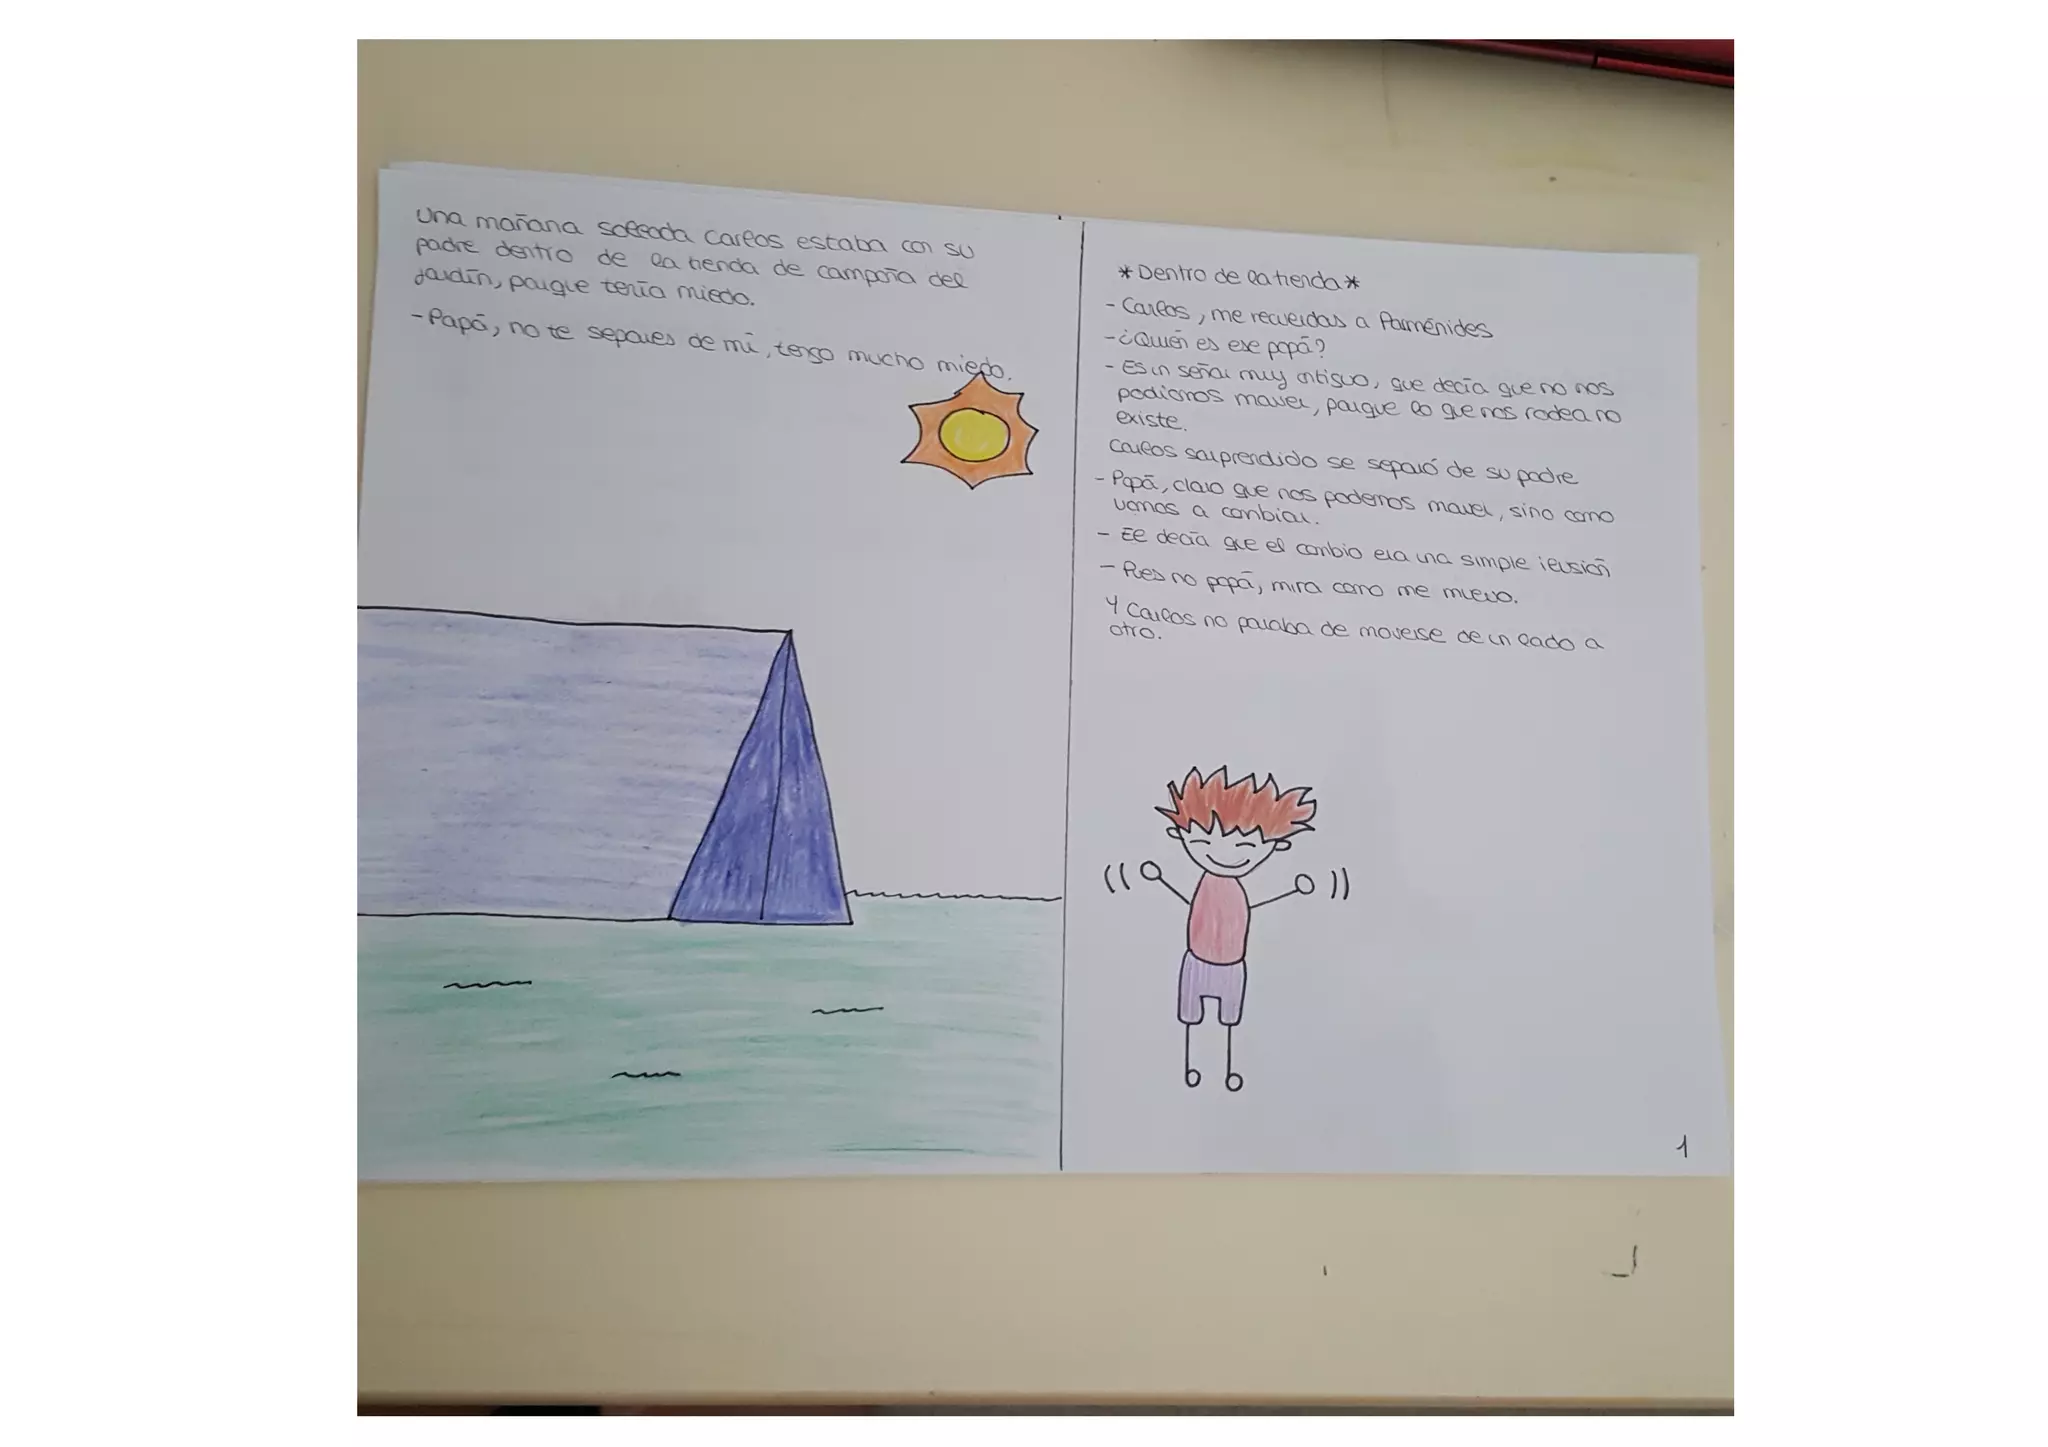 Una mañana soleada Carlos estaba con su
padre dentro de la tienda de campaña del
jardín, porque tenía miedo.
- Papá, no te separes de mí, tengo mucho miedo.
*Dentro de la tienda*
- Carlos, me recuerdas a Parménides
- ¿Quién es ese papá?
- Es un señor muy antiguo, que decía que no nos
podíamos mover, porque lo que nos rodea no
existe.
Carlos sorprendido se separó de su padre
- Papá, claro que nos podemos mover, sino como
vamos a cambiar.
- Él decía que el cambio era una simple ilusión
- Pues no papá, mira como me muevo.
Y Carlos no paraba de moverse de un lado a
otro.
1